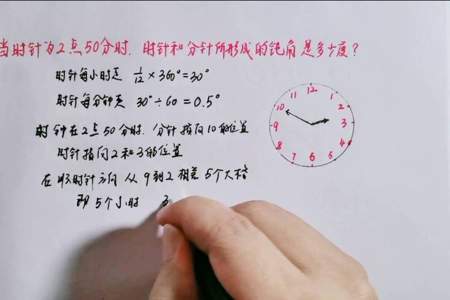 当时针为2点50分时,时针和分针所形成的钝角是多少度?
时针每小时走 1/12×360°=30°
时针每分钟走 30°÷60=0.5°
时钟在2点50分时,分针指向10的位置
时针指向2和3的位置
在顺时针方向 从9到2 相差5个大格
即5个小时 3
12
11
1
10
2
9
3
8
4
7
6
5